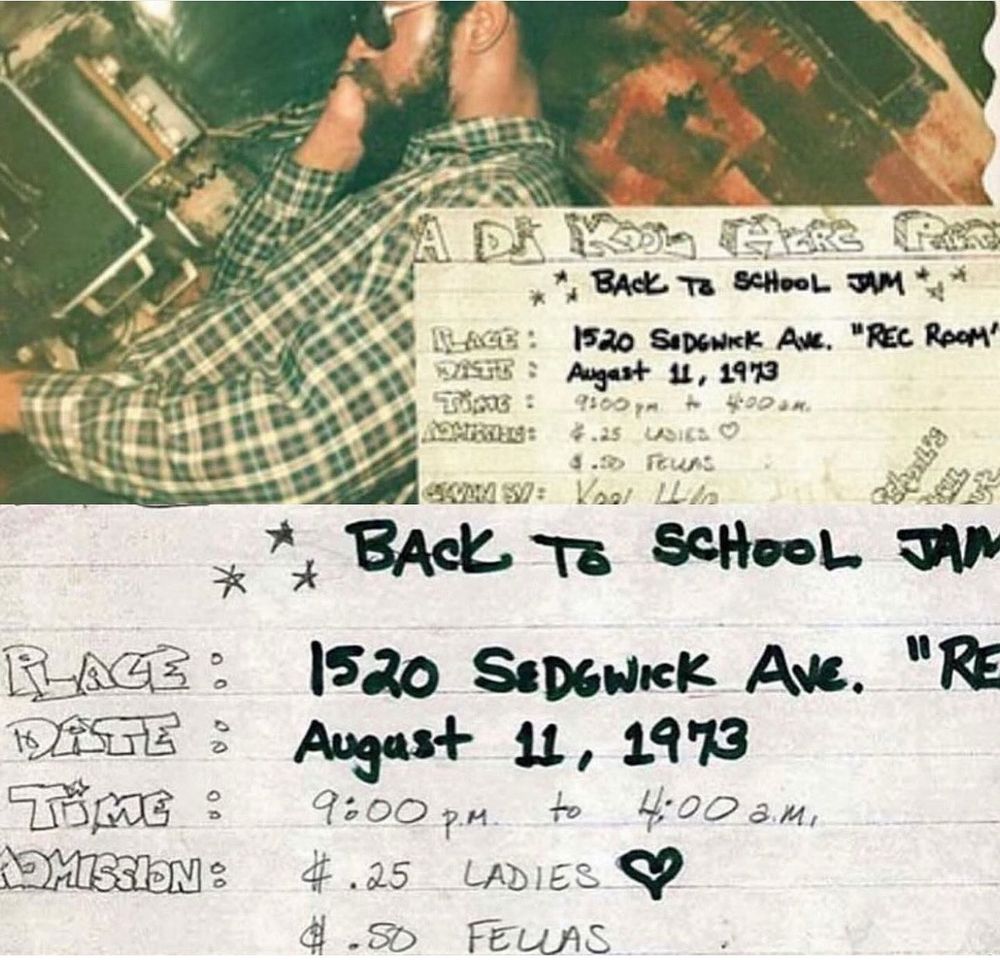 A DJ KOOL HERC PARTY
BACK TO SCHOOL JAM
PLACE: 1520 SEDGWICK AVE. "REC ROOM"
DATE: August 11, 1973
TIME: 9:00 p.m. to 4:00 a.m.
ADMISSION: $.25 LADIES ♡
$.50 FELLAS
GIVEN BY: Kool Herc
BACK TO SCHOOL JAM
PLACE: 1520 SEDGWICK AVE. "RE
DATE: August 11, 1973
TIME: 9:00 p.m. to 4:00 a.m.
ADMISSION: $.25 LADIES ♥
$.50 FELLAS